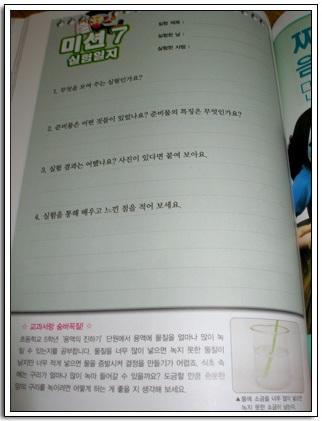 미션 7
실험일지
실험 제목 :
실험한 날 :
실험한 사람 :
1. 무엇을 보여 주는 실험인가요?
2. 준비물은 어떤 것들이 있었나요? 준비물의 특징은 무엇인가요?
3. 실험 결과는 어땠나요? 사진이 있다면 붙여 보아요.
4. 실험을 통해 배우고 느낀 점을 적어 보세요.
☆ 교과서랑 숨바꼭질! ☆
초등학교 5학년 '용액의 진하기' 단원에서 용액에 물질을 얼마나 많이 녹
일 수 있는지를 공부합니다. 물질을 너무 많이 넣으면 녹지 못한 물질이
남지만 너무 적게 넣으면 물을 증발시켜 결정을 만들기가 어렵죠. 식초 속
에는 구리가 얼마나 많이 녹아 들어갈 수 있을까요? 도금할 만큼 충분한
양의 구리를 녹이려면 어떻게 하는 게 좋을 지 생각해 보세요.
▲ 물에 소금을 너무 많이 넣으면
녹지 못한 소금이 남는다.
음